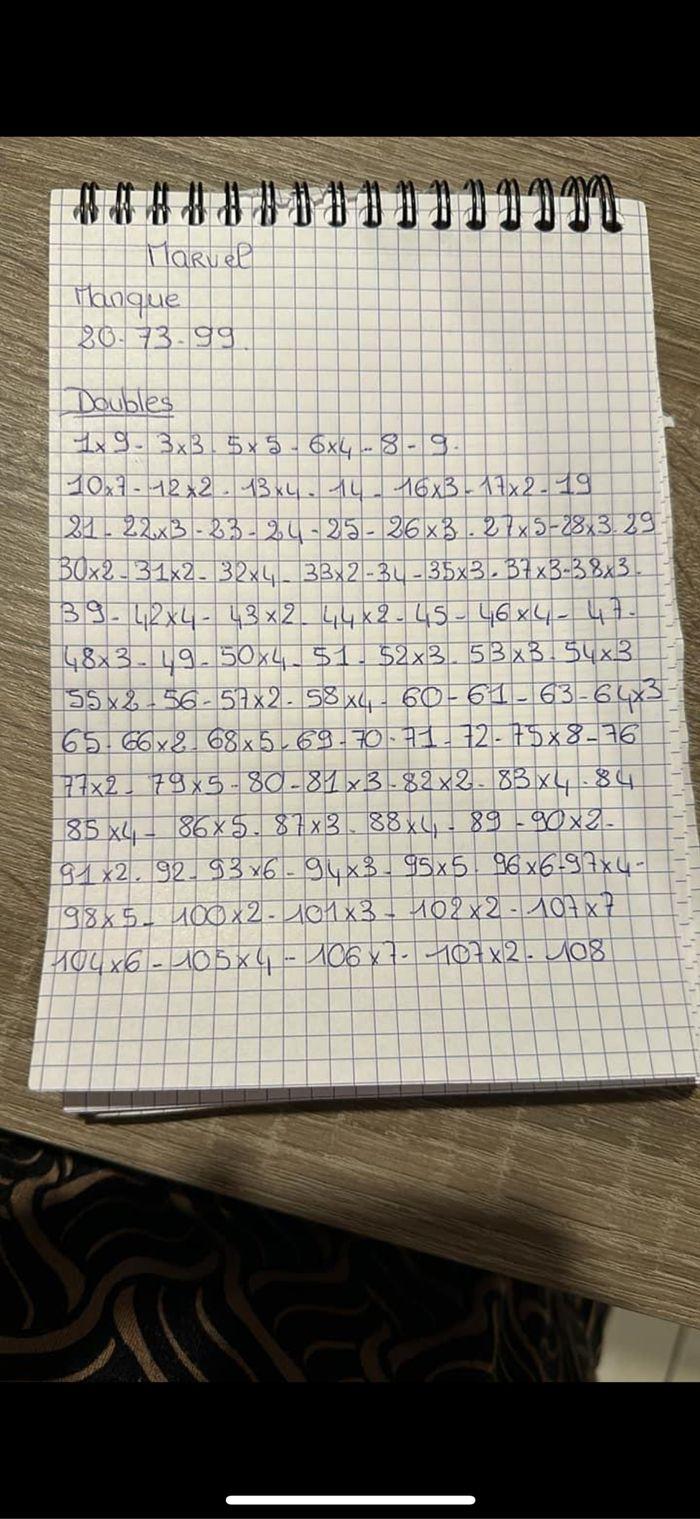 Marvel
Manque
20. 73. 99.
Doubles
1x9 - 3x3. 5x5 - 6x4 - 8 - 9.
10x7 - 12x2. 13x4. 14 - 16x3 - 17x2 - 19
21 - 22x3 - 23 - 24 - 25 - 26x3. 27x5 - 28x3. 29
30x2 - 31x2 - 32x4 - 33x2 - 34 - 35x3. 37x3 - 38x3.
39 - 42x4 - 43x2 - 44x2 - 45 - 46x4 - 47.
48x3 - 49 - 50x4 - 51 - 52x3. 53x3. 54x3
55x2 - 56 - 57x2. 58x4 - 60 - 61 - 63 - 64x3
65. 66x2 - 68x5 - 69 - 70. 71 - 72 - 75x8 - 76
77x2 - 79x5 - 80 - 81x3 - 82x2 - 83x4. 84
85x4 - 86x5. 87x3. 88x4 - 89 - 90x2.
91x2. 92 - 93x6 - 94x3 - 95x5. 96x6 - 97x4 -
98x5 - 100x2 - 101x3 - 102x2. 107x7
104x6 - 105x4 - 106x7. 107x2. 108